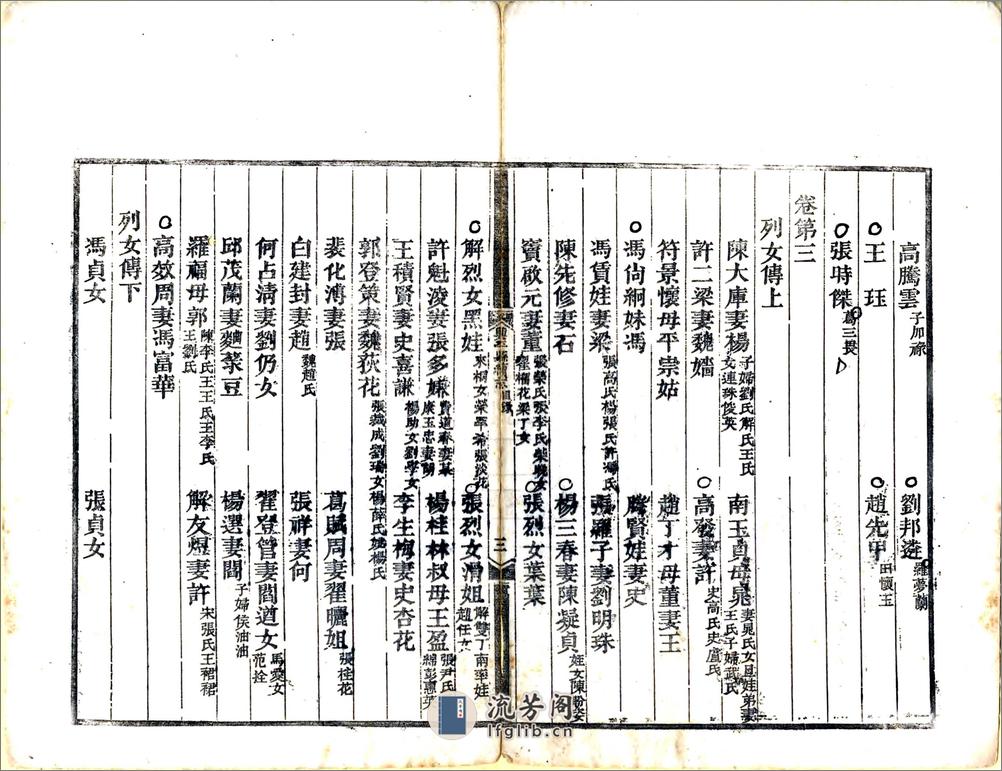 高騰雲 子加祿 劉邦遴 羅夢蘭
王珏 趙先甲 田懷玉
張時傑 葛三畏
卷第三
列女傳上
陳大庫妻楊 子婦劉氏解氏王氏女連珠俊英 南玉貞母晁 妻晁氏女旦娃弟妻王氏子婦武氏
許二梁妻魏嬙 高發妻許 史高氏史盧氏
符景懷母平祟姑 趙丁才母董妻王
馮尙絅妹馮 騰賢娃妻史
馮賃娃妻梁 張高氏楊張氏許馮氏 張羅子妻劉明珠
陳先修妻石 楊三春妻陳凝貞 姪女陳
竇啟元妻董 張榮氏張李氏柴晚女翟榴花梁了女 張烈女葉葉
三
解烈女黑娃 來柳女榮平希張淡花 張烈女滑姐 解雙丁南翠娃趙任女
許魁淩妻張多嫌 賈道春妻某康玉忠妻 楊桂林叔母王盈 張尹氏
王積賢妻史喜謙 楊助女劉學女 李生梅妻史杏花
郭登策妻魏荻花 張織成劉瑞女楊薛氏姊楊氏
裴化溥妻張 葛賦周妻翟曬姐 張桂花
白建封妻趙 魏趙氏 張祥妻何
何占淸妻劉仍女 翟登管妻閻道女 馬愛女范拴
邱茂蘭妻魏菉豆 楊選妻閻 子婦侯油油
羅福母郭 陳李氏王王氏王李氏王劉氏 解友煜妻許 宋張氏王裙裙
高效周妻馮富華
列女傳下
馮貞女 張貞女
流芳阁
lfglib.cn